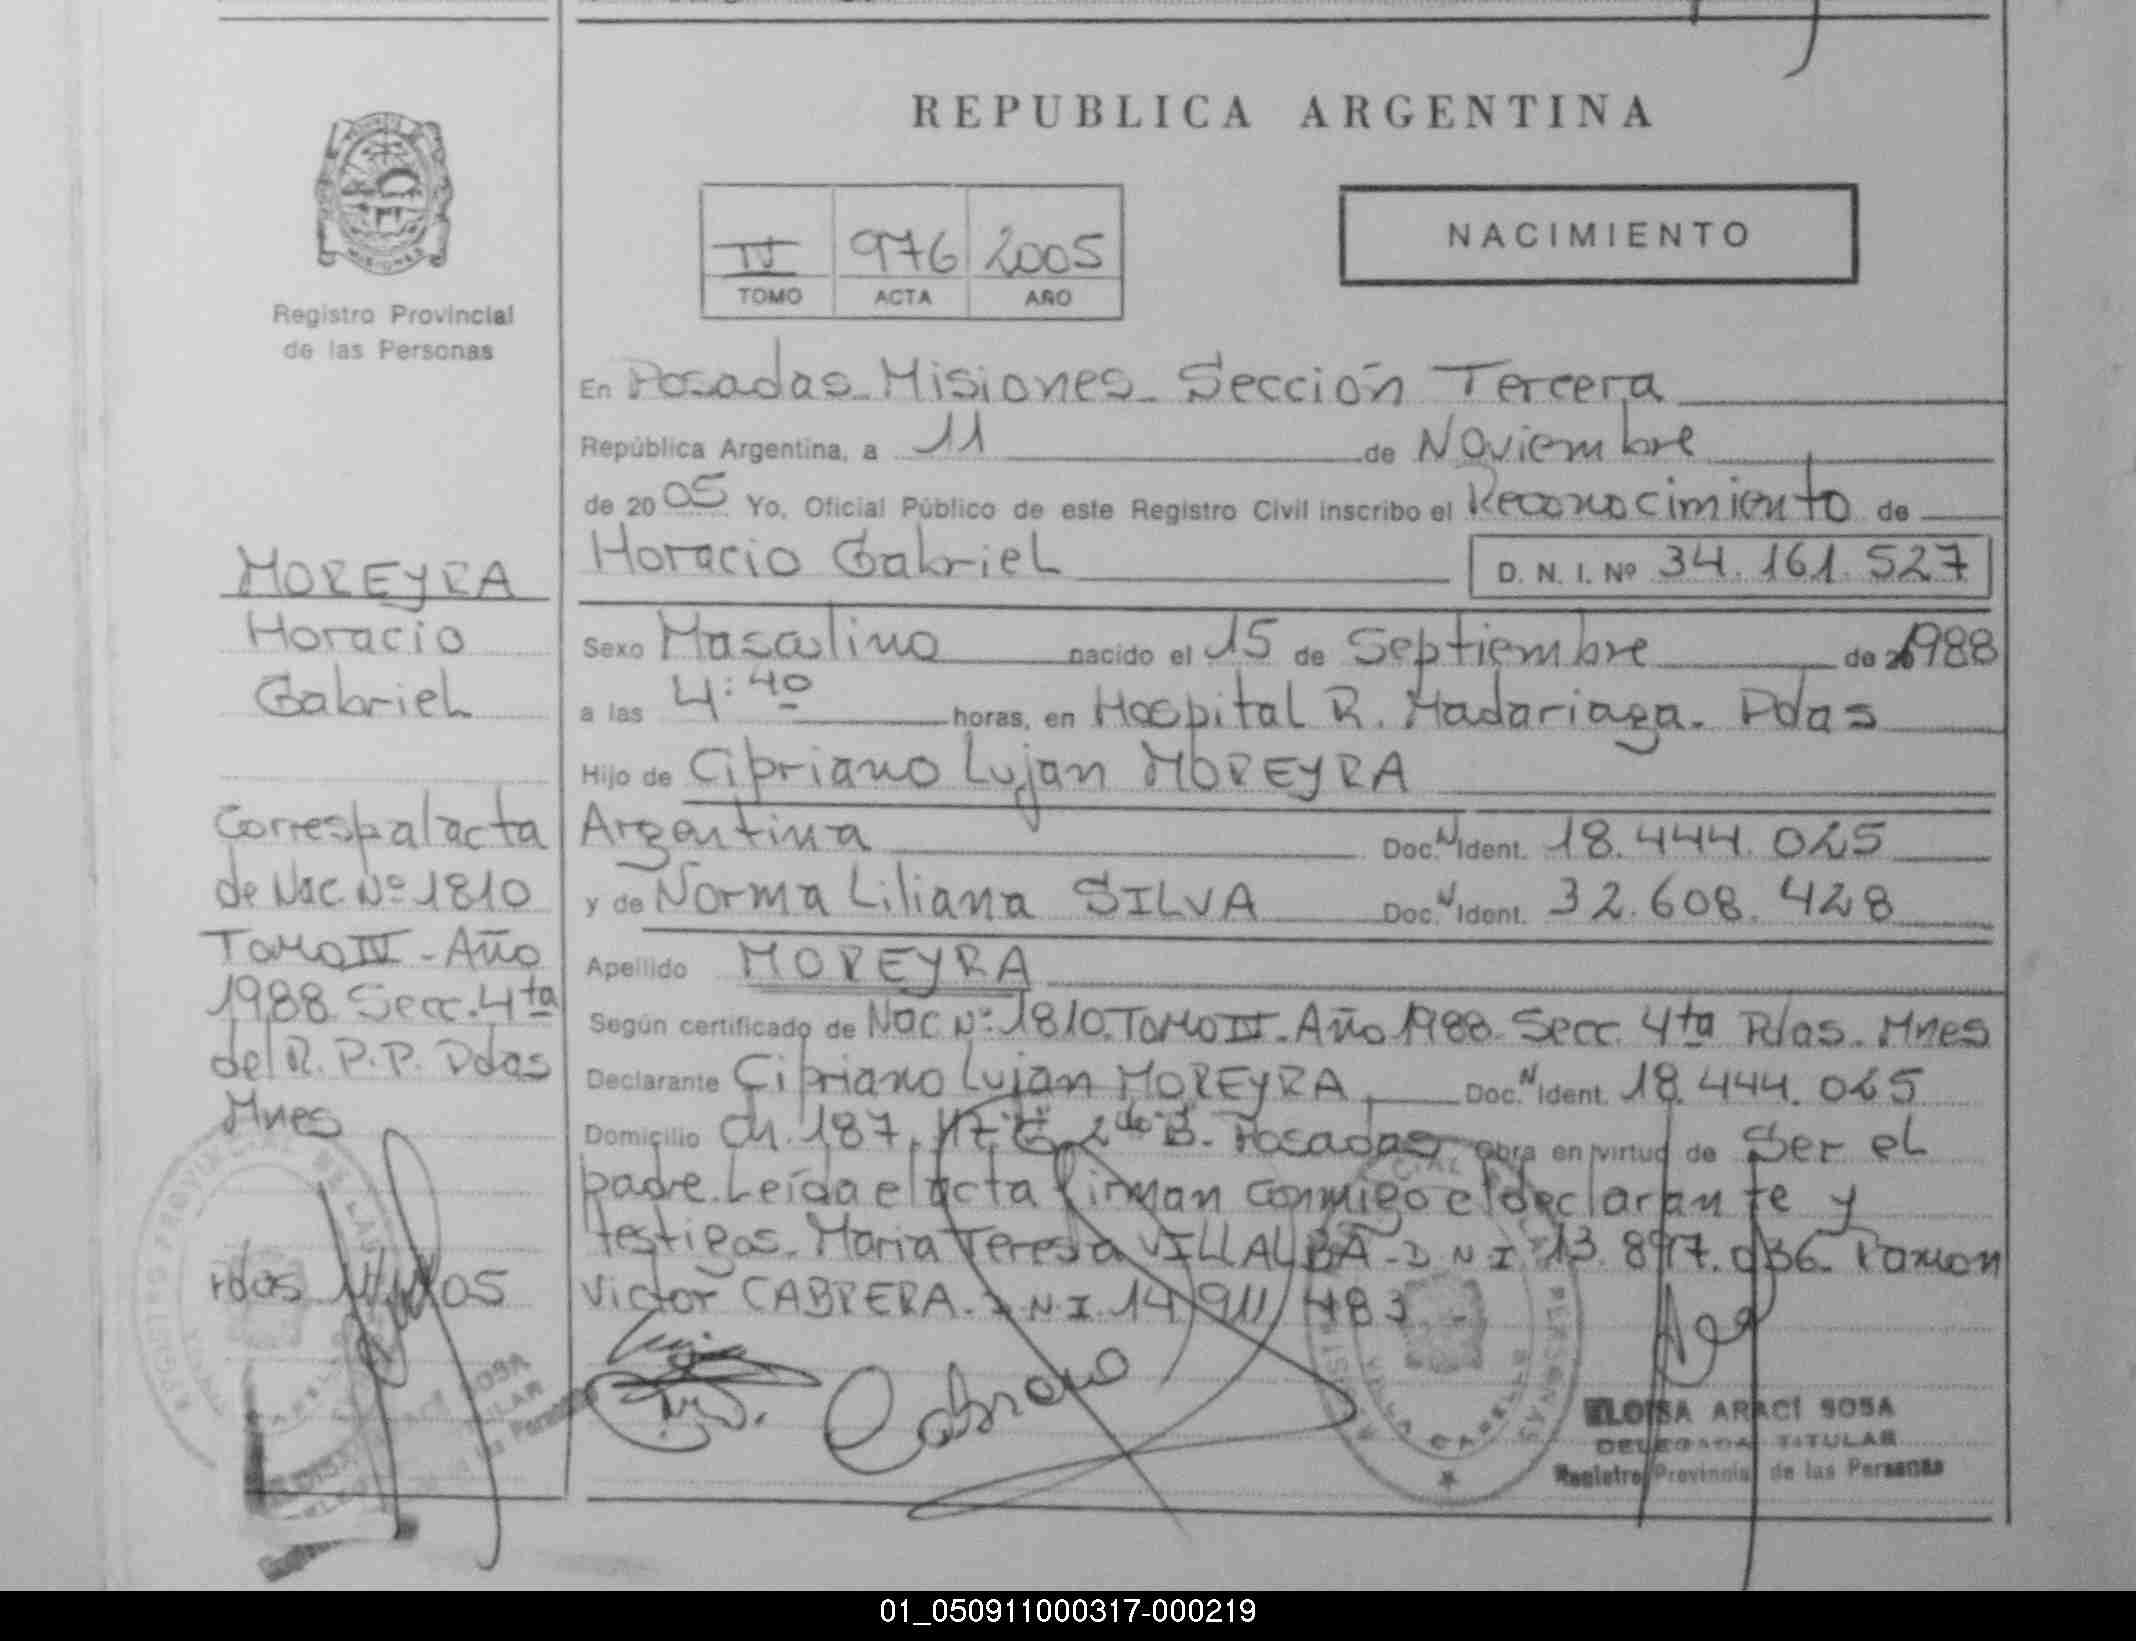 REPUBLICA ARGENTINA
NACIMIENTO
IV 976 2005
TOMO ACTA AÑO
Registro Provincial
de las Personas
MOREYRA
Horacio
Gabriel
Corresp al acta
de Nac Nº 1810
Tomo IV - Año
1988 Secc. 4ta
del R.P.P. Pdas
Mnes
En Posadas - Misiones - Sección Tercera
República Argentina, a 11 de Noviembre
de 2005 Yo, Oficial Público de este Registro Civil inscribo el Reconocimiento de
Horacio Gabriel D. N. I. Nº 34.161.527
Sexo Masculino nacido el 15 de Septiembre de 1988
a las 4:40 horas, en Hospital R. Madariaga. Pdas
Hijo de Cipriano Lujan MOREYRA
Argentina Doc. N Ident. 18.444.025
y de Norma Liliana SILVA Doc. N Ident. 32.608.428
Apellido MOREYRA
Según certificado de Nac Nº 1810. Tomo IV - Año 1988 - Secc. 4ta Pdas - Mnes
Declarante Cipriano Lujan MOREYRA Doc. N Ident. 18.444.025
Domicilio Ch. 187, 2do B. Posadas obra en virtud de Ser el
padre. Leída el acta firman conmigo el declarante y
testigos. Maria Teresa VILLALBA - D N I 13.897.036 Ramon
Victor CABRERA - D N I 14.911.483
Cabrera
ELOISA ARACÍ SOSA
DELEGADA TITULAR
Registro Provincial de las Personas
01_050911000317-000219